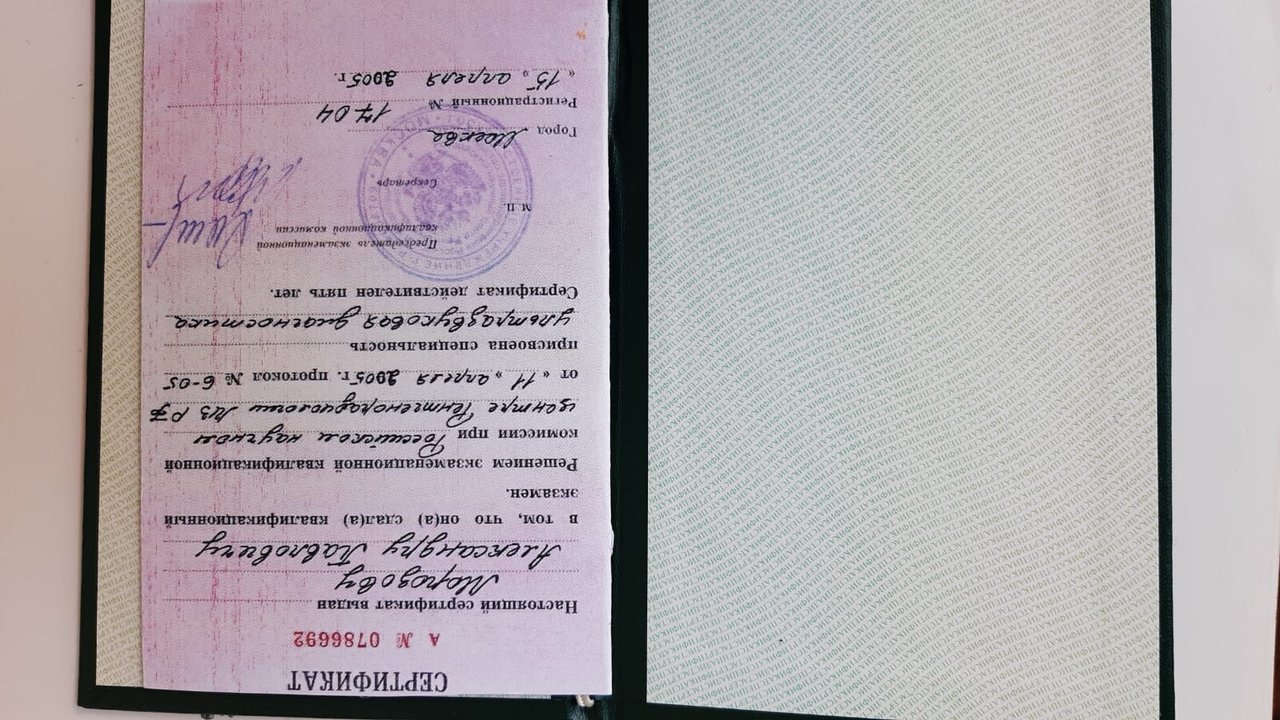 СЕРТИФИКАТ
А № 0786692
Настоящий сертификат выдан
Морозову
Александру Павловичу
в том, что он(а) сдал(а) квалификационный
экзамен.
Решением экзаменационной квалификационной
комиссии при Российском научном
центре Рентгенорадиологии МЗ РФ
от « 11 » апреля 2005 г. протокол № 6-05
присвоена специальность
ультразвуковая диагностика
Сертификат действителен пять лет.
Председатель экзаменационной
квалификационной комиссии
М.П.
Секретарь
Город Москва
Регистрационный № 1704
« 15 » апреля 2005 г.